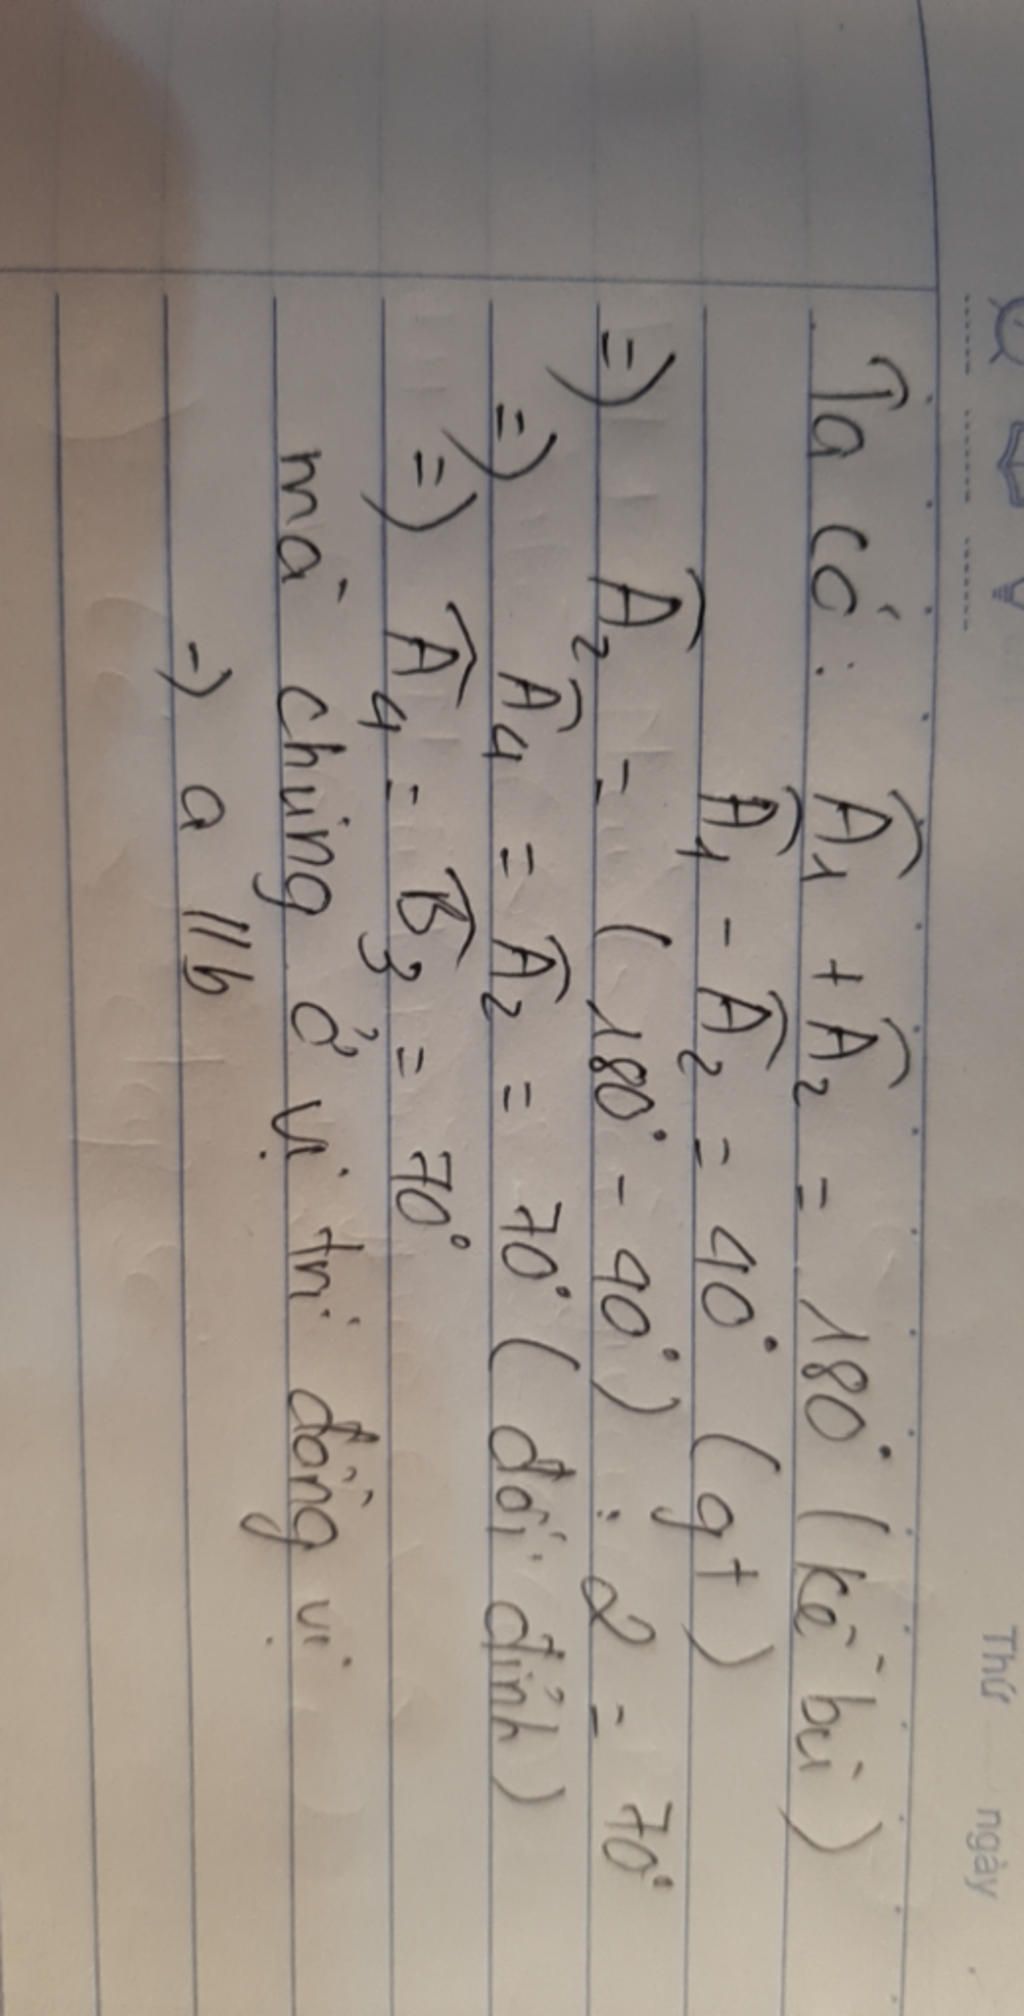 Thứ ngày
Ta có: Â₁ + Â₂ = 180° (kề bù)
Â₁ - Â₂ = 40° (gt)
=) Â₂ = (180° - 40°) : 2 = 70°
=) Â₄ = Â₂ = 70° (đối đỉnh)
=) Â₄ = B̂₃ = 70°
mà chúng ở vị trí đồng vị
-) a // b